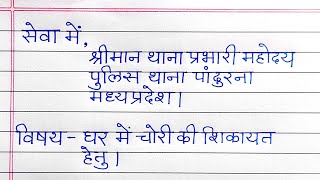 सेवा में,
श्रीमान थाना प्रभारी महोदय
पुलिस थाना पांढुरना
मध्यप्रदेश।
विषय- घर में चोरी की शिकायत
हेतु।